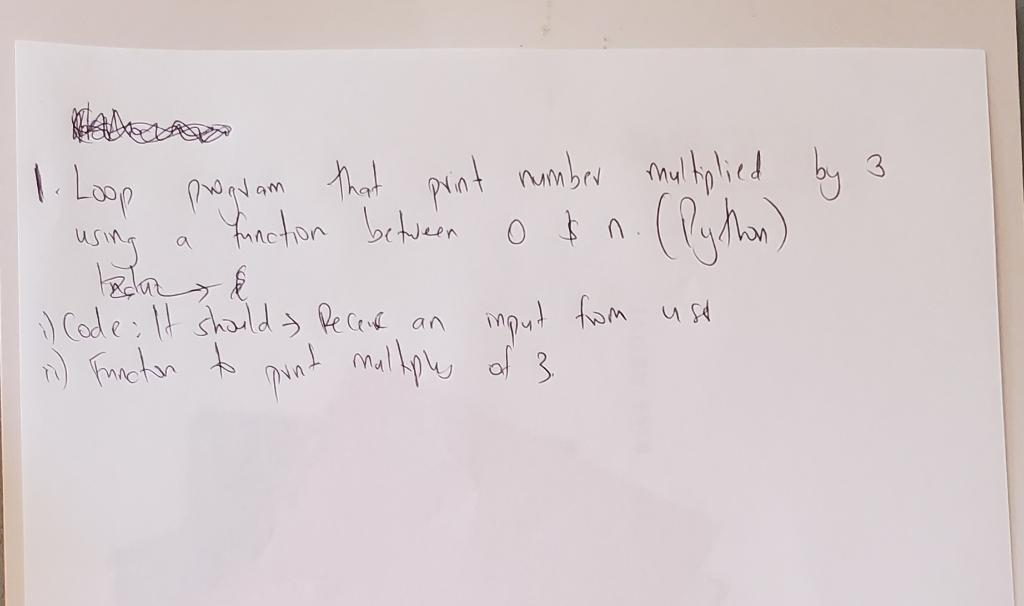 1. Loop program that print number multiplied by 3
using a function between 0 & n. (Python)
i) Code: It should → Receive an input from user
ii) Function to print multiples of 3.